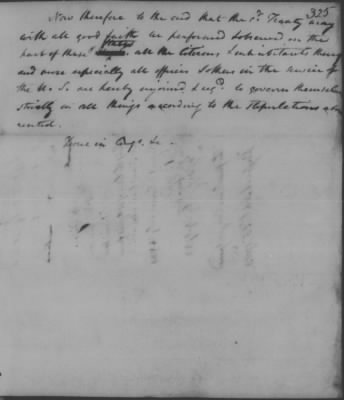 325
Now therefore to the end that the sd. Treaty may
with all good faith be performed & observed on the
part of these States all the citizens & inhabitants thereof
and more especially all officers & others in the service of
the U. S. are hereby enjoined & reqd. to govern themselves
strictly in all things according to the stipulations above
recited.
Done in Congs. &c.